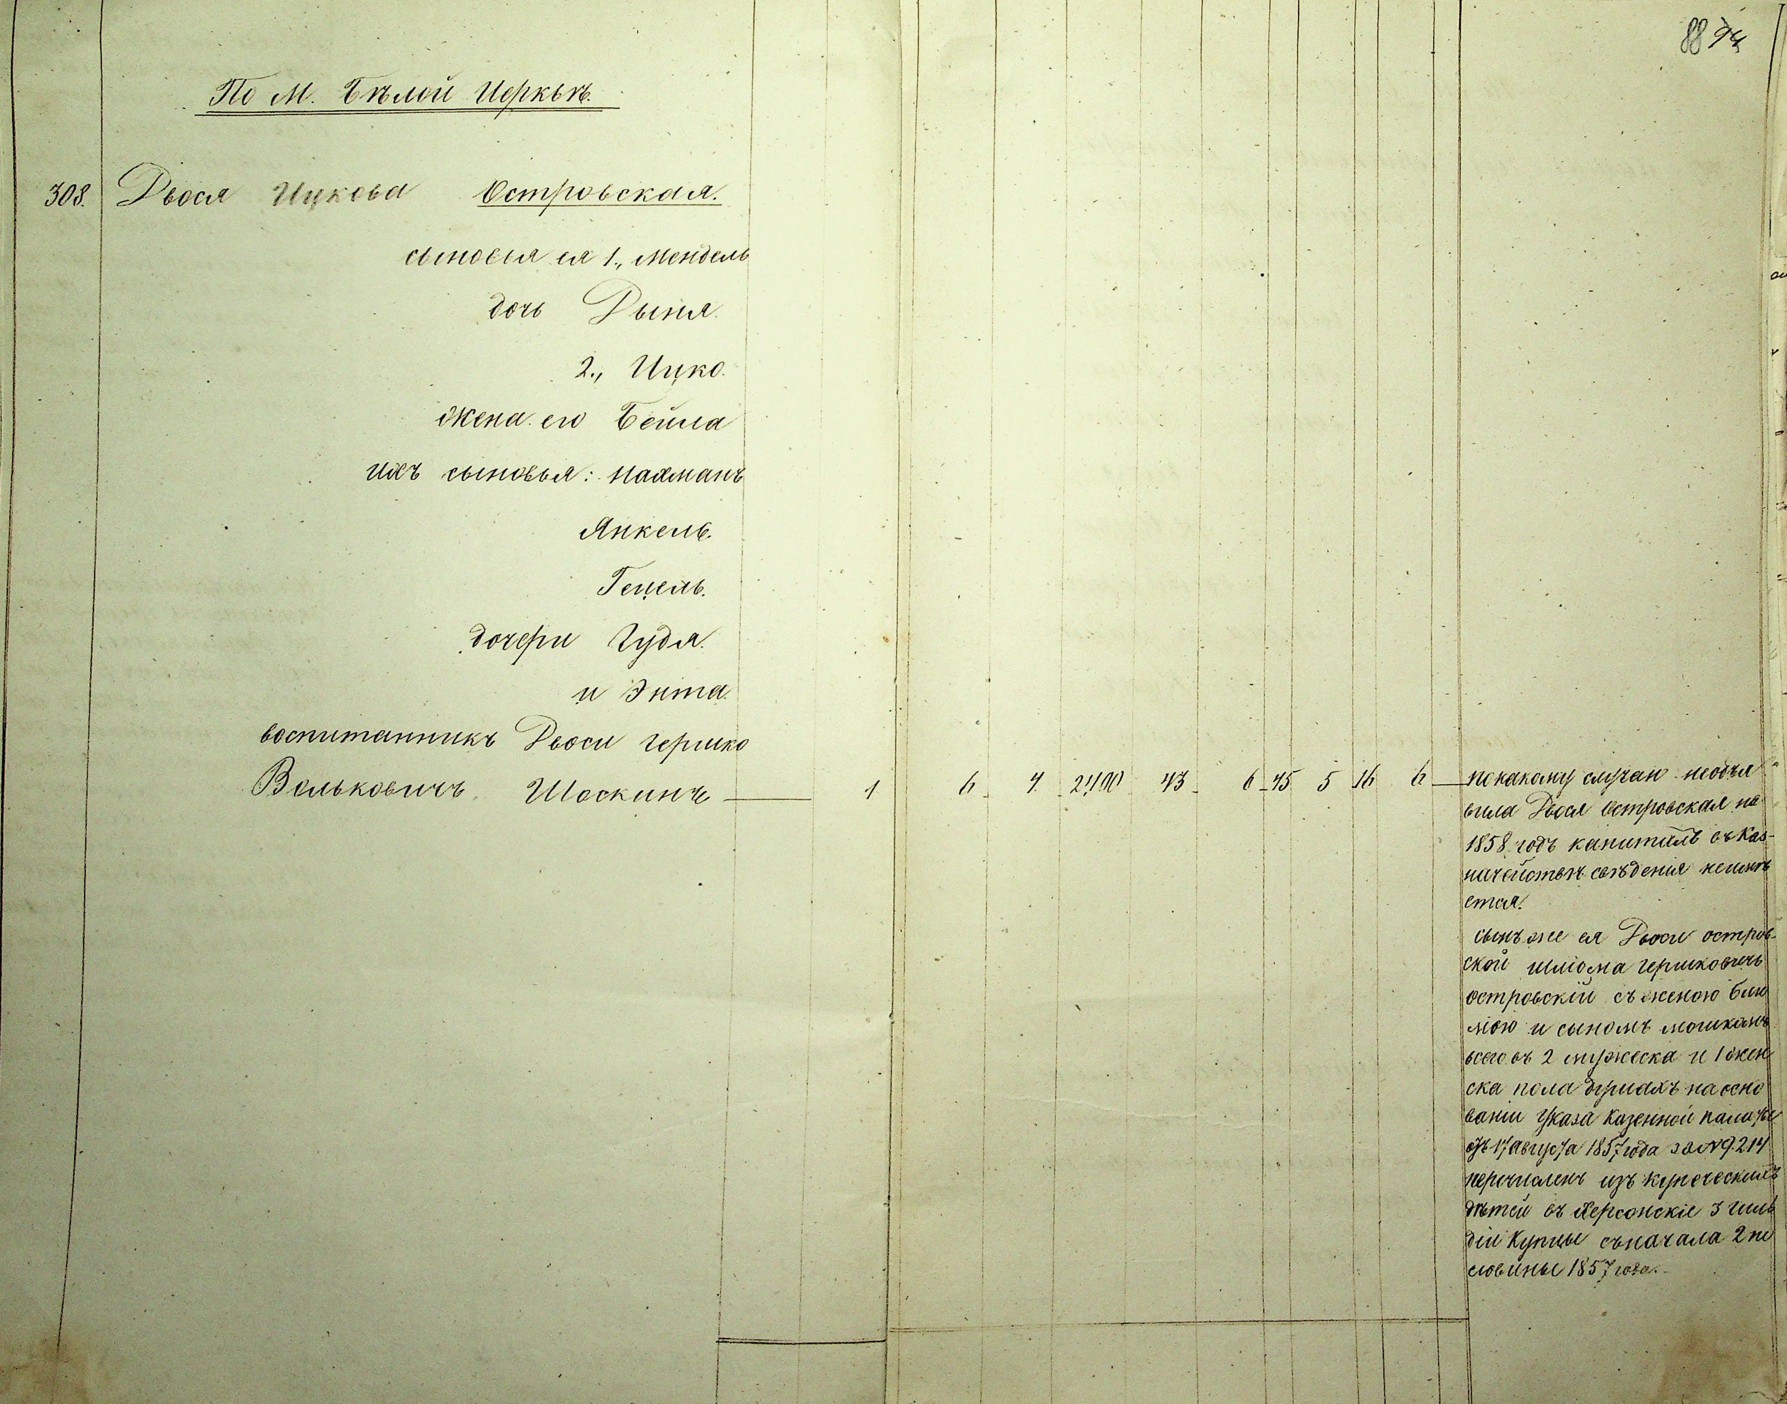 88
По М. Бѣлой Церквѣ.
308. Двося Ицкова Островская.
сыновья ея 1., Мендель
дочь Рыня.
2., Ицко.
жена его Бейла
ихъ сыновья: Нахманъ
Янкель.
Гецель.
дочери Гудя.
и Энта.
воспитанникъ Двоси Гершко
Вольковичъ Шоскинъ
1 6 4 2400 43 6 45 5 16 6
покакому случаю необъя
вила Двося Островская на
1858 годъ капиталъ въ Каз-
начействѣ свѣденія неимѣ
ется.
сынъ же ея Двоси Остров-
ской Шліома Гершковичъ
Островскій съ женою Блю
мою и сыномъ Мошкомъ
всего въ 2 мужеска и 1 жен
ска пола душахъ на осно
ваніи Указа Казенной Палаты
отъ 17 Августа 1857 года за № 9214
перечисленъ изъ купеческихъ
дѣтей въ Херсонскіе 3 гиль
діи Купцы съ начала 2 по
ловины 1857 года.